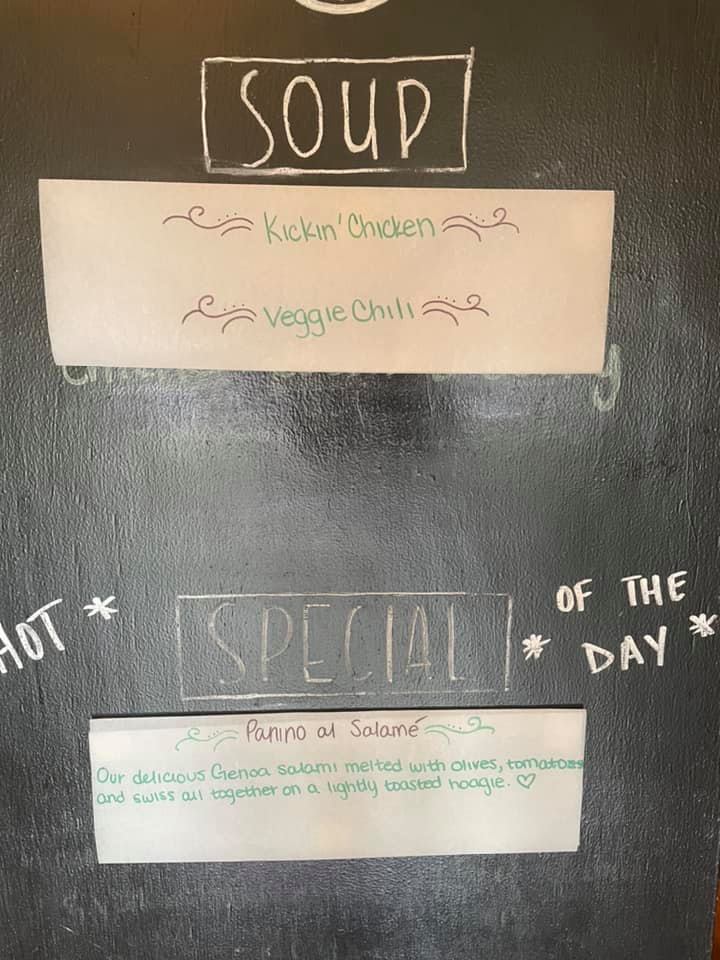 SOUP
Kickin' Chicken
Veggie Chili
HOT *
SPECIAL
* OF THE
DAY *
Panino al Salamé
Our delicious Genoa salami melted with olives, tomatoes
and swiss all together on a lightly toasted hoagie. ♡